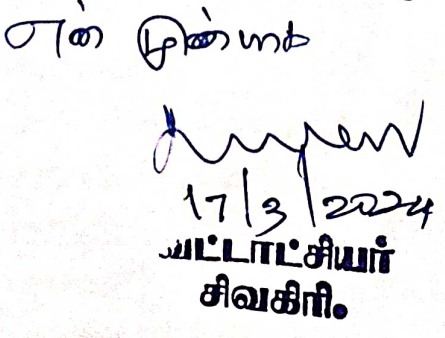 என் முன்பாக
17/3/2024
வட்டாட்சியர்
சிவகிரி.